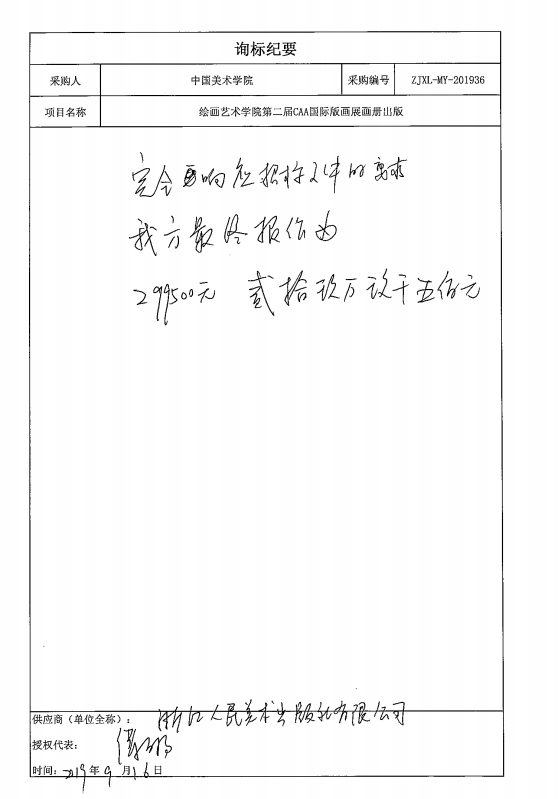 询标纪要
采购人 中国美术学院 采购编号 ZJXL-MY-201936
项目名称 绘画艺术学院第二届CAA国际版画展画册出版
完全响应招标文件的要求
我方最终报价为
299500元 贰拾玖万玖千五佰元
供应商（单位全称）： 浙江人民美术出版社有限公司
授权代表：
时间：2019年9月16日